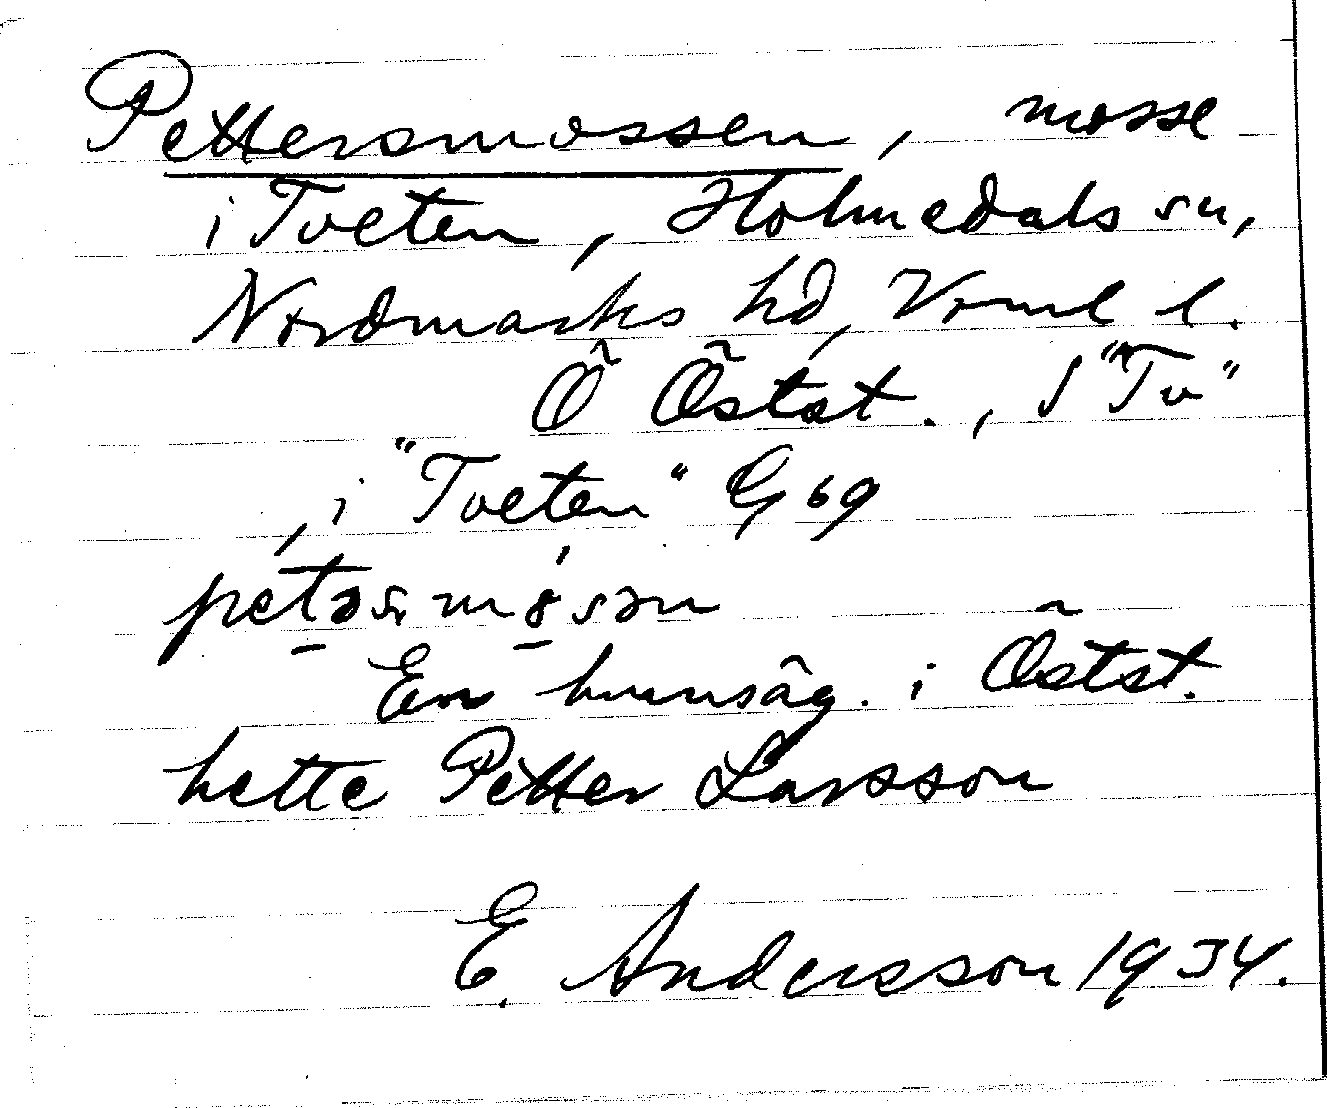 Pettersmossen, mosse
i Tveten, Holmedals sn,
Nordmarks hd, Vrml l.
Ö Östst., S "Tv"
, i "Tveten" G 69
petəsmɵsən
En hemmsäg. i Östst.
hette Petter Larsson
E. Andersson 1934.